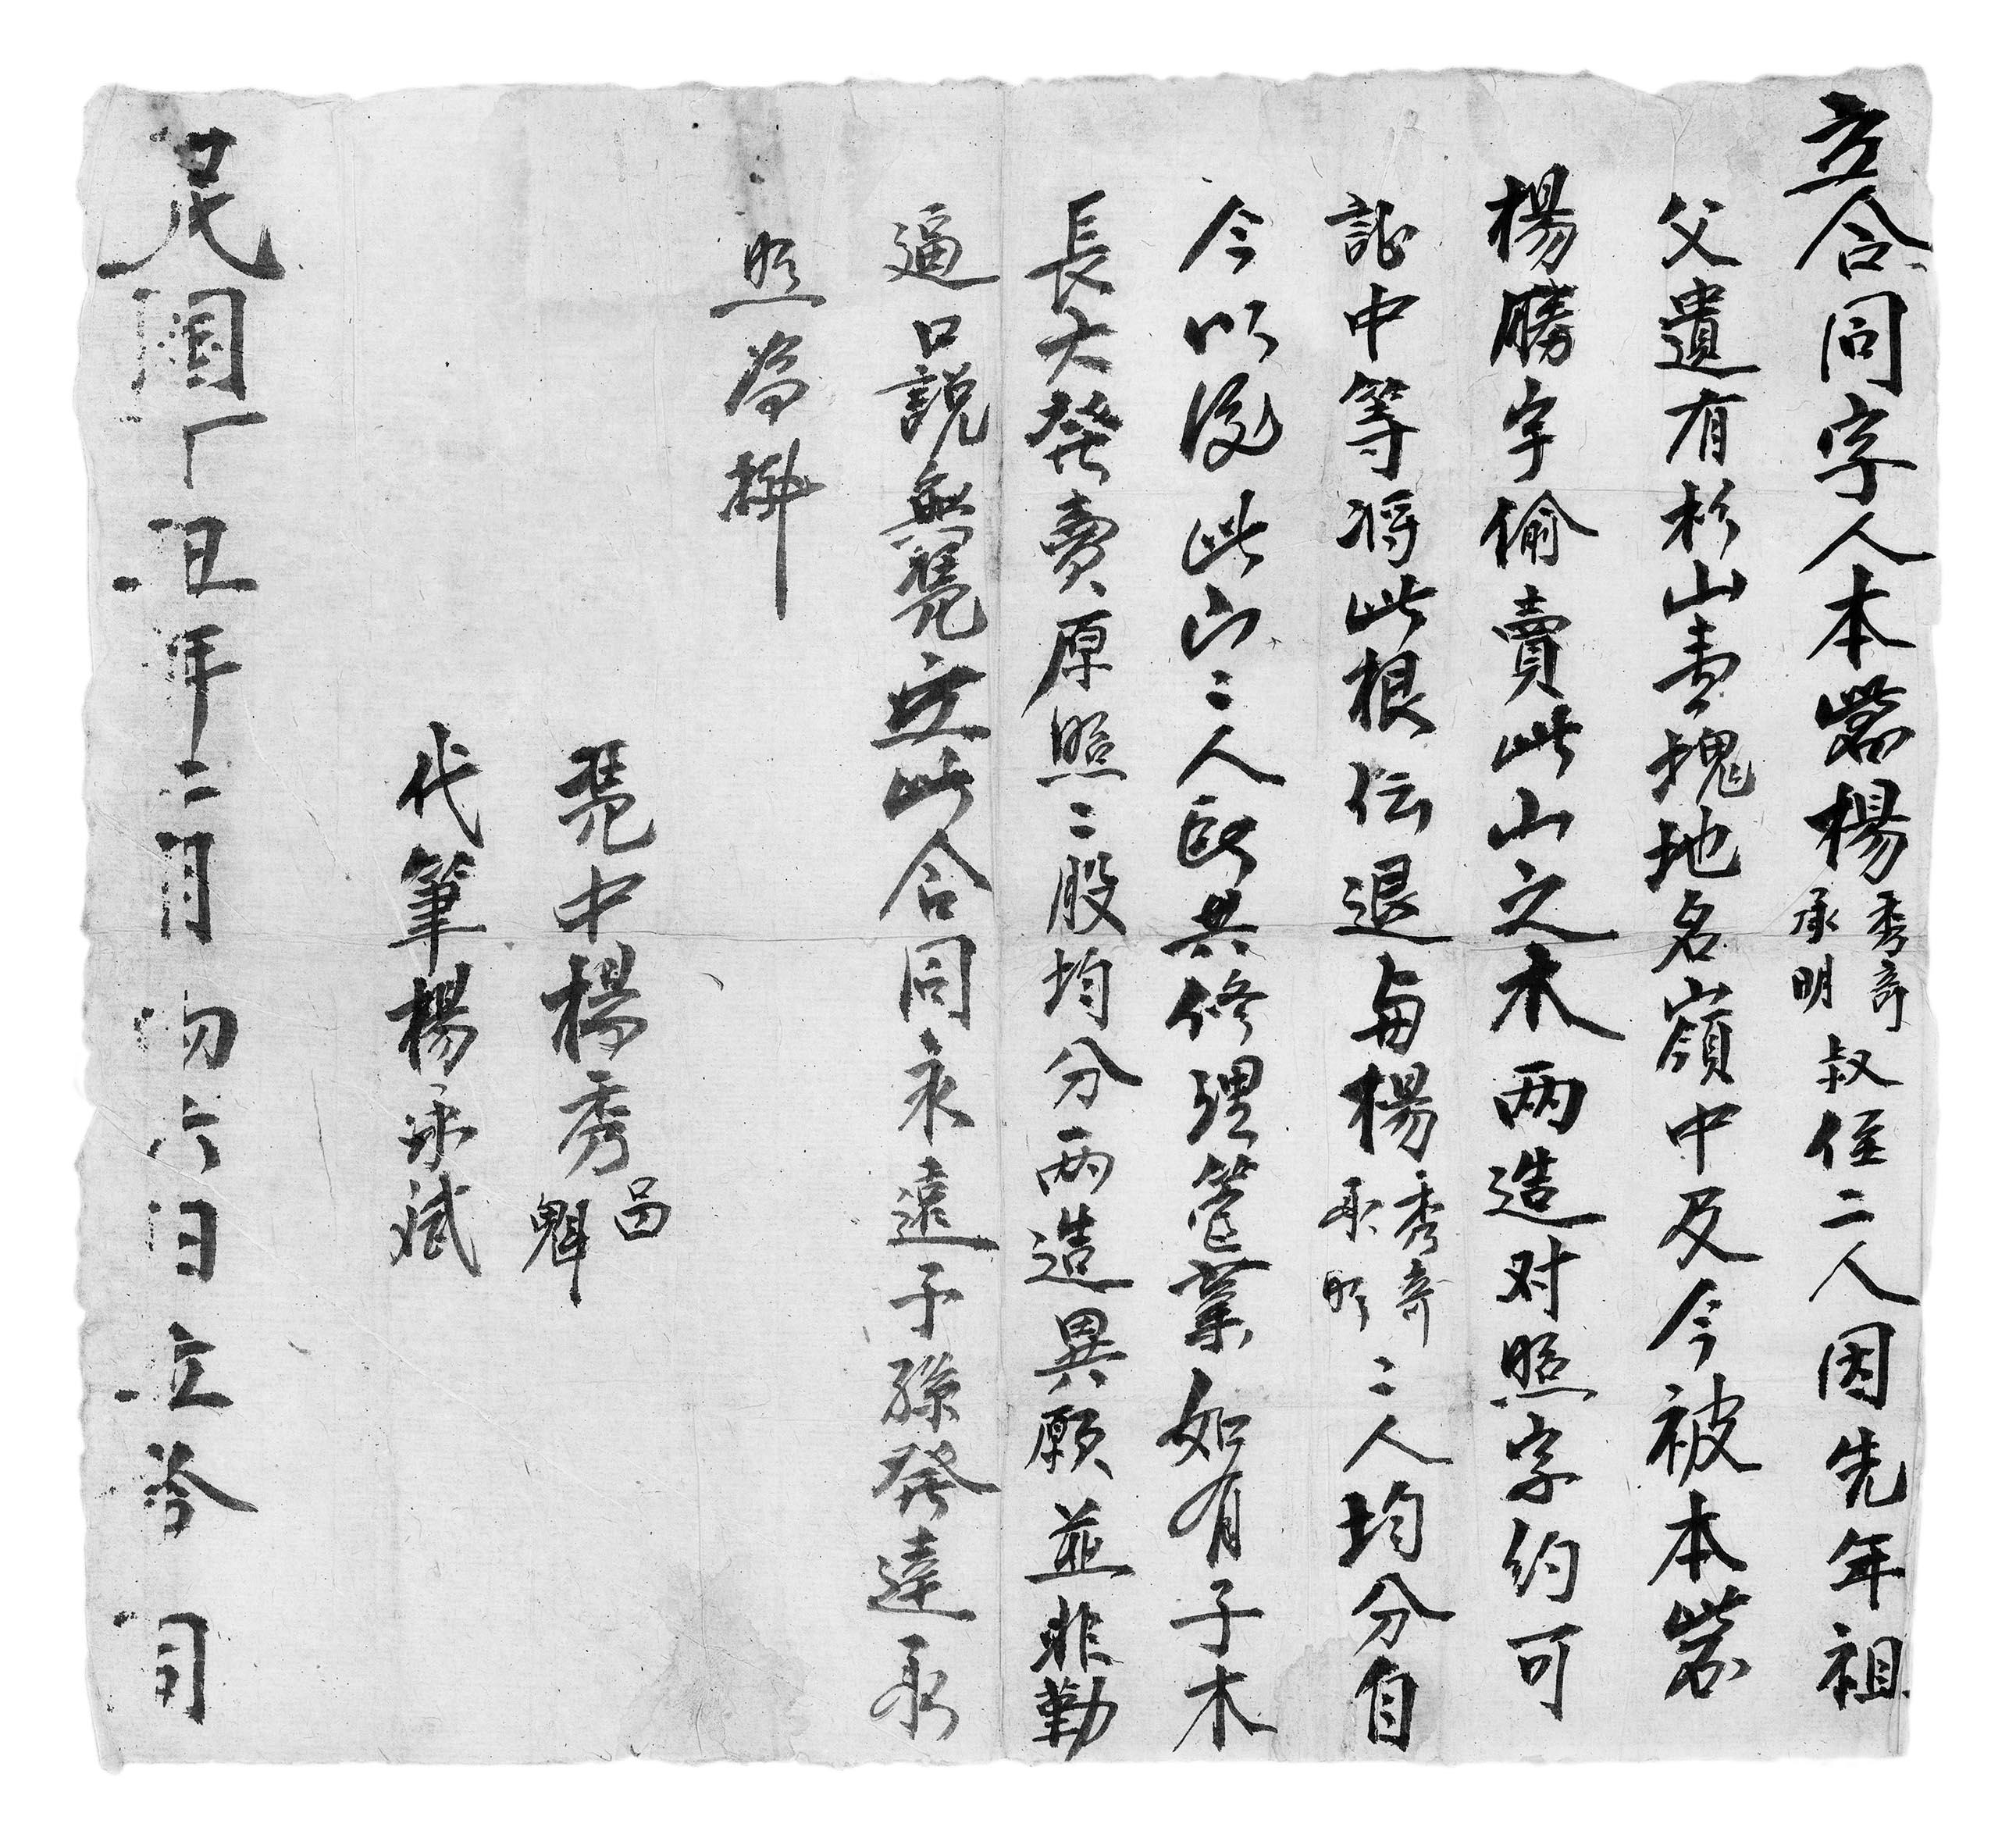 立合同字人本砦楊秀奇承明叔侄二人因先年祖
父遺有杉山壹塊地名嶺中及今被本砦
楊勝字偷賣此山之木两造对照字約可
証中等将此根伝退与楊秀奇承明二人均分自
今以後此山二人共修理管業如有子木
長大發賣原照二股均分两造異願並非勒
逼口説無凴立此合同永遠子孫發達永
照為拠
凴中楊秀昌魁
代筆楊承斌
民國丁丑年二月初六日立合同